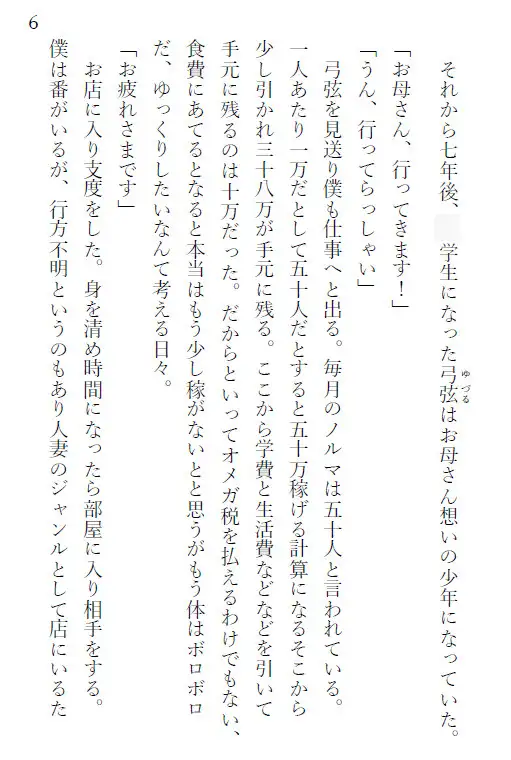 6
それから七年後、　学生になった弓弦はお母さん想いの少年になっていた。
ゆづる
「お母さん、行ってきます！」
「うん、行ってらっしゃい」
弓弦を見送り僕も仕事へと出る。毎月のノルマは五十人と言われている。
一人あたり一万だとして五十人だとすると五十万稼げる計算になるそこから
少し引かれ三十八万が手元に残る。ここから学費と生活費などなどを引いて
手元に残るのは十万だった。だからといってオメガ税を払えるわけでもない、
食費にあてるとなると本当はもう少し稼がないとと思うがもう体はボロボロ
だ、ゆっくりしたいなんて考える日々。
「お疲れさまです」
お店に入り支度をした。身を清め時間になったら部屋に入り相手をする。
僕は番がいるが、行方不明というのもあり人妻のジャンルとして店にいるた